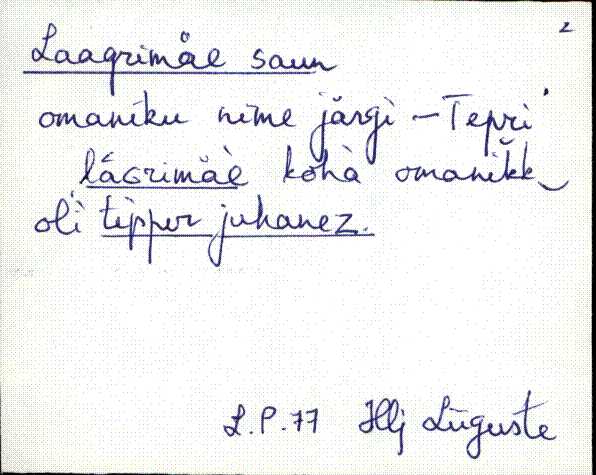 2
Laagrimäe saun
omaniku nime järgi – Tepri
lágrimäè kohà omanìkk‿
olì tìpper juhanez.
L.P.77 Hlj Lüguste